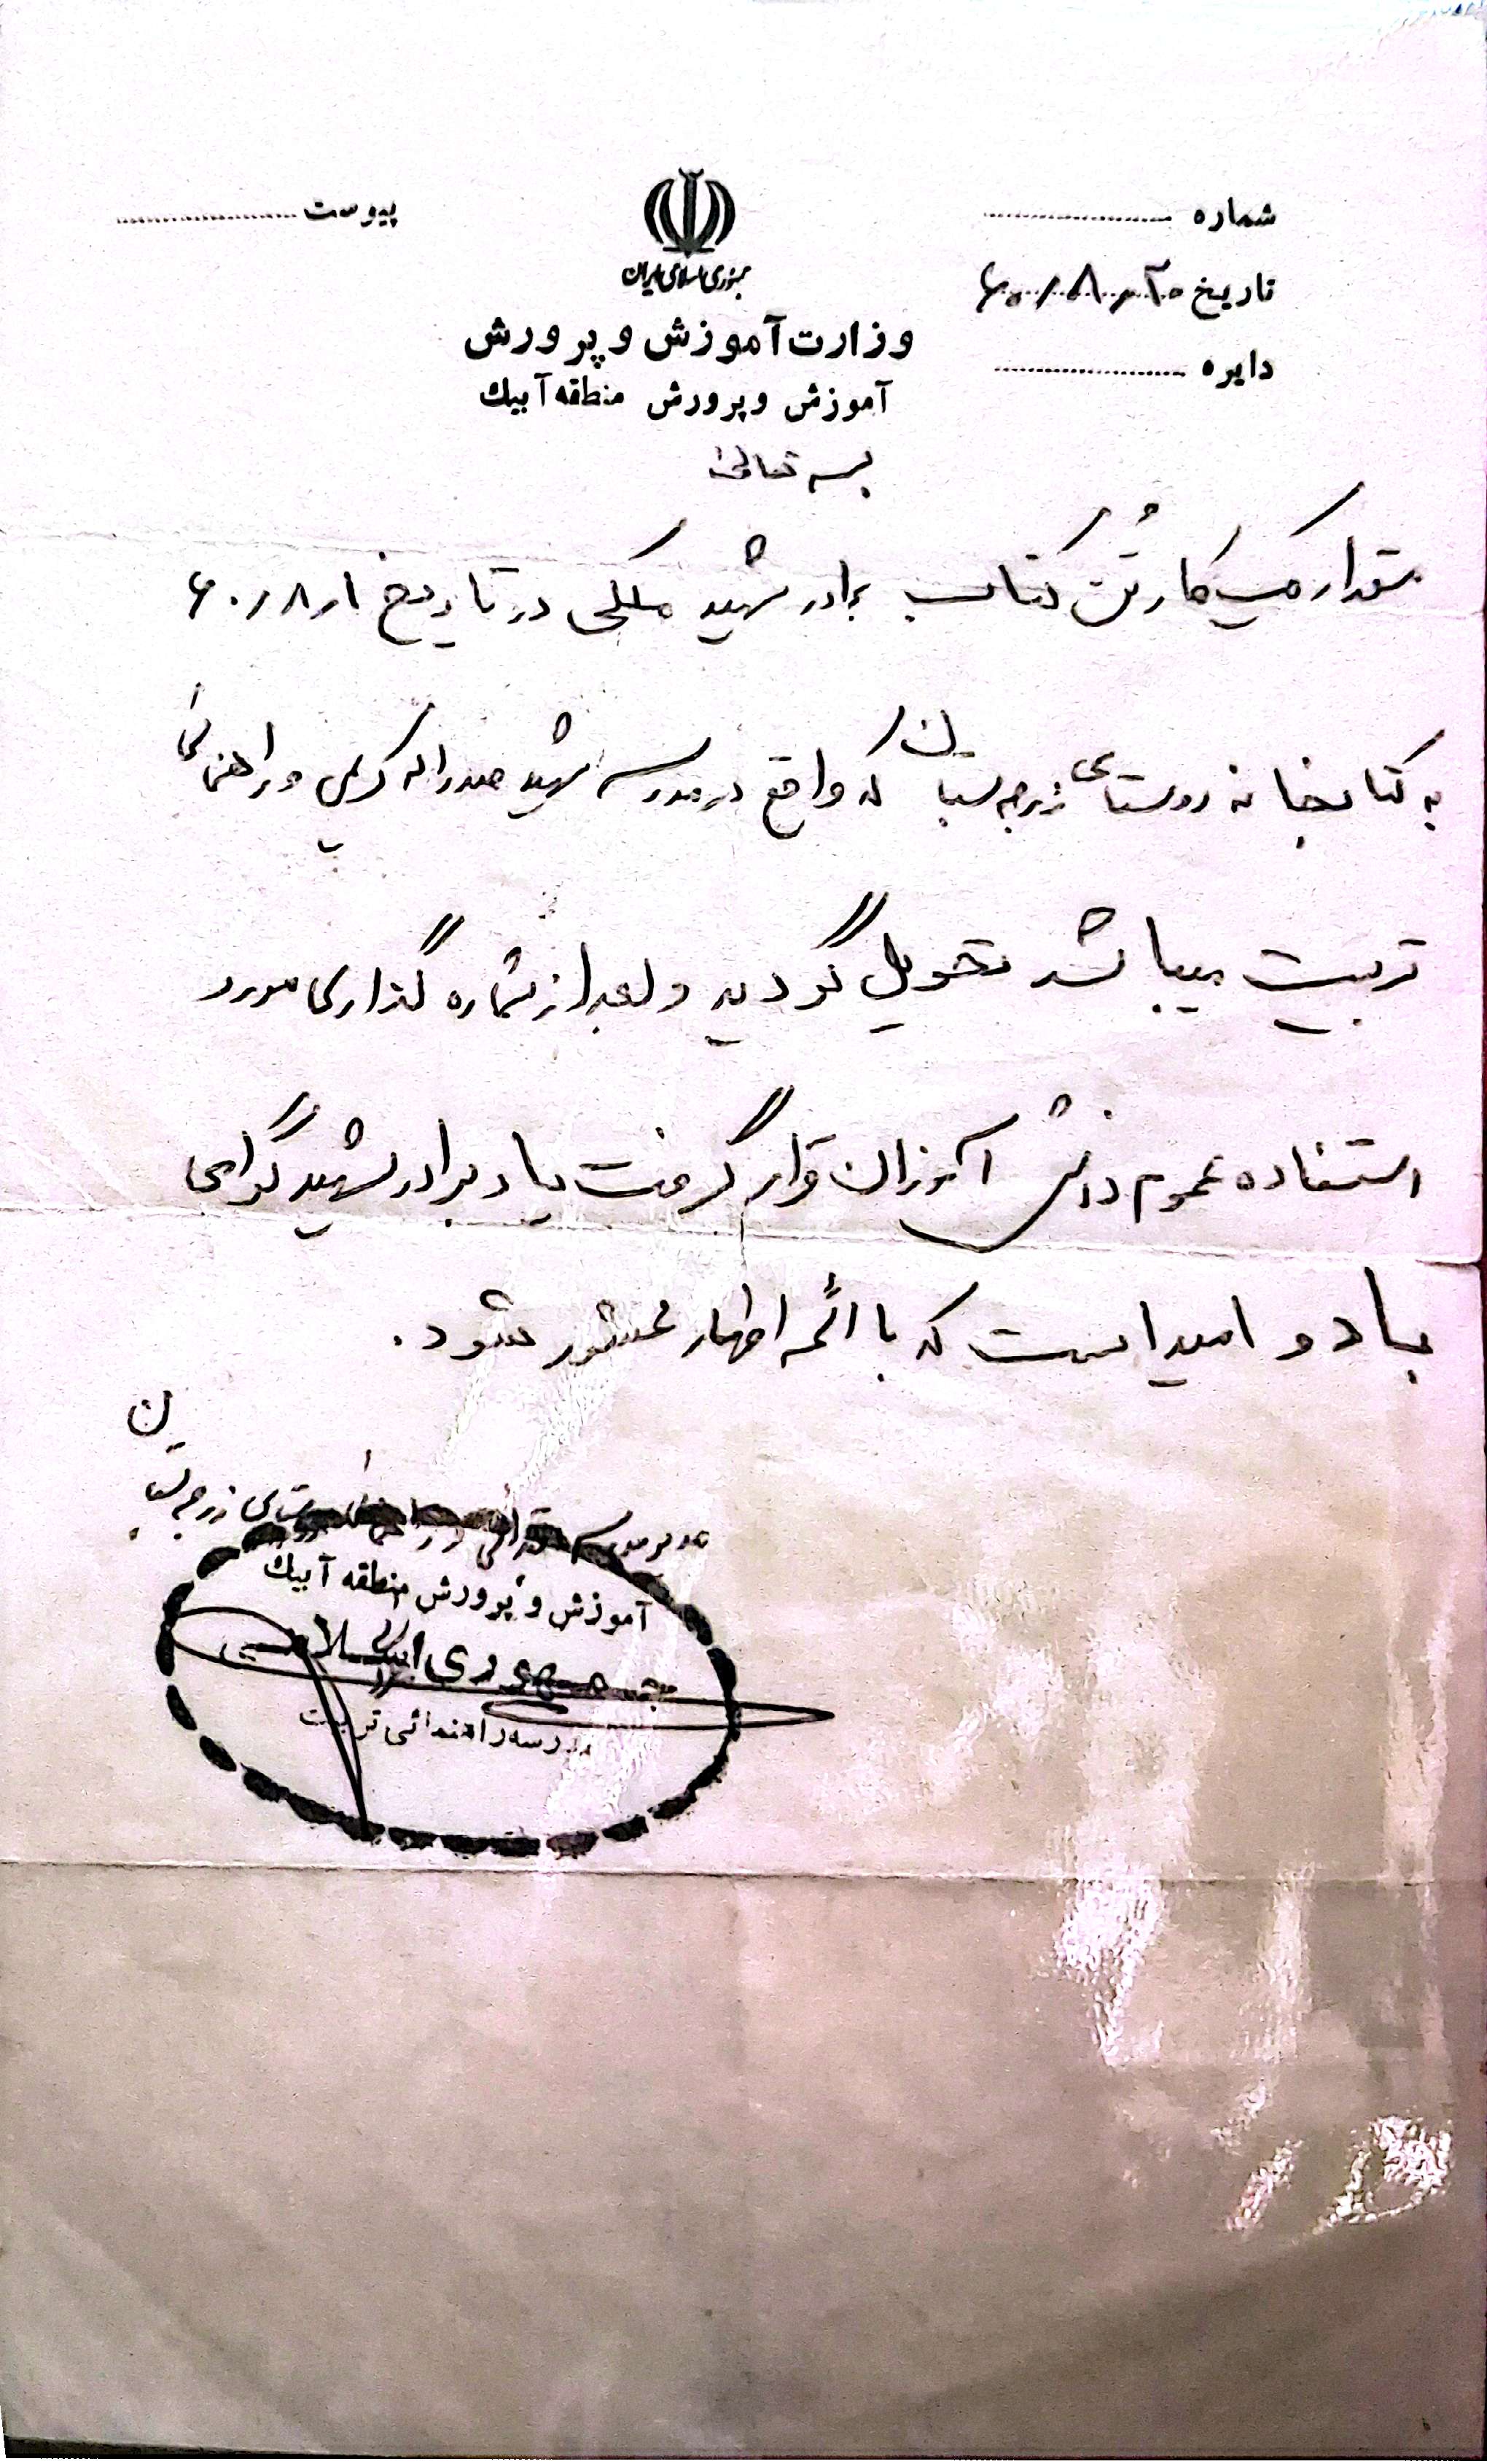 شماره
تاریخ ۶۰/۸/۲۰
دایره
پیوست
جمهوری اسلامی ایران
وزارت آموزش و پرورش
آموزش و پرورش منطقه آبیك
بسمه تعالی
بمقدار یک کارتُن کتاب برادر شهید ملکی در تاریخ ۶۰/۸/۱
به کتابخانه روستای زرجه بستان که واقع در مدرسه شهید کرمی و راهنمائی
تربیت میباشد تحویل گردید و بعد از شماره گذاری مورد
استفاده عموم دانش آموزان قرار گرفت یاد برادر شهید گرامی
باد و امید است که با ائمه اطهار محشور شود.
مدیر مدرسه راهنمائی روستای زرجه بستان
آموزش و پرورش منطقه آبیك
جمهوری اسلامی
مدرسه راهنمائی تربیت